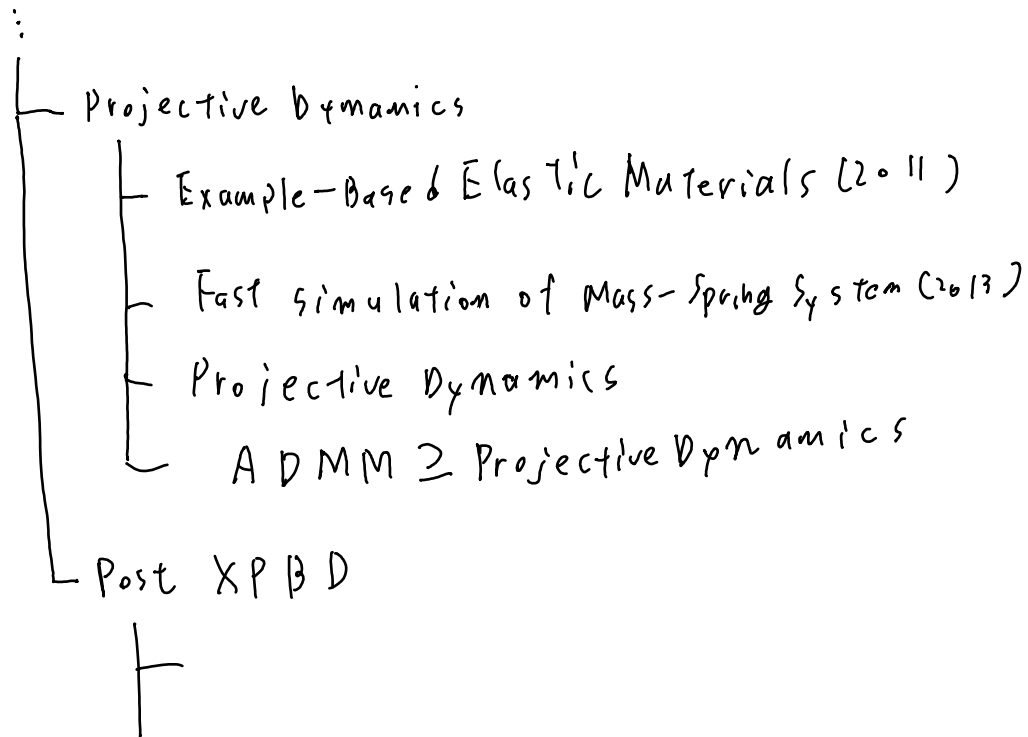 Projective Dymamics
Example-Based Elastic Materials (2011)
Fast simulation of Mass-Spring System (2013)
Projective Dynamics
ADMM ⊇ Projective Dynamics
Post XPBD